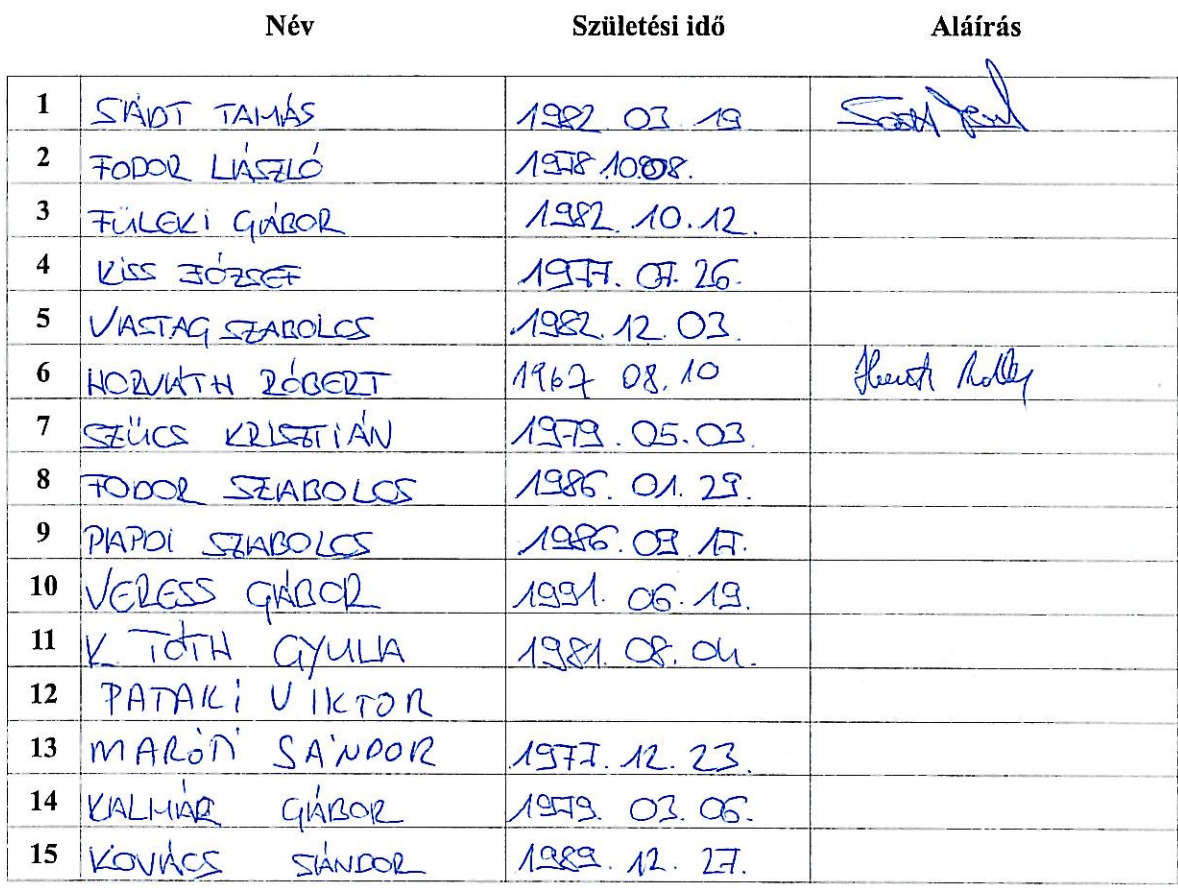 Név Születési idő Aláírás
1 STÁDT TAMÁS 1982 03. 19
2 FODOR LÁSZLÓ 1978 10.08.
3 FÜLEKI GÁBOR 1982. 10. 12.
4 KISS JÓZSEF 1977. 07. 26.
5 VASTAG SZABOLCS 1982. 12. 03.
6 HORVÁTH RÓBERT 1967 08. 10
7 SZÜCS KRISZTIÁN 1979. 05. 03.
8 FODOR SZABOLCS 1986. 01. 29.
9 PAPDI SZABOLCS 1986. 09. 17.
10 VERESS GÁBOR 1991. 06. 19.
11 K. TÓTH GYULA 1981. 08. 04.
12 PATAKI VIKTOR
13 MARÓTI SÁNDOR 1977. 12. 23.
14 KALMÁR GÁBOR 1979. 03. 06.
15 KOVÁCS SÁNDOR 1989. 12. 27.